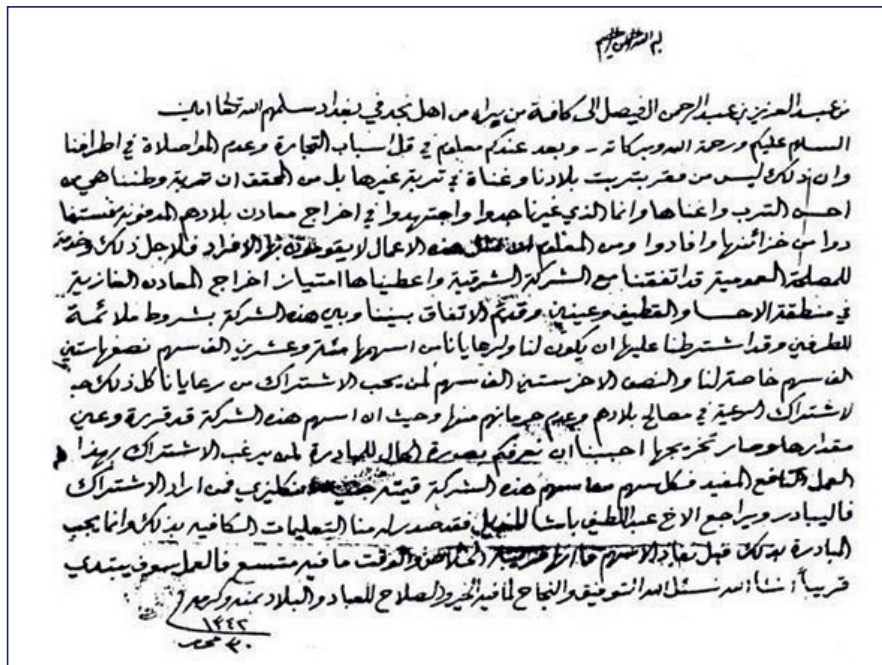 بسم الله الرحمن الرحيم
من عبد العزيز بن عبد الرحمن ال فيصل الى كافة من يراه من اهل نجد في بغداد سلمهم الله تعالى امين
السلام عليكم ورحمة الله وبركاته - وبعد عندكم معلوم في قل اسباب التجارة وعدم المواصلاة في اطرافنا
وان ذلك ليس من فقر بتربت بلادنا وغناة في تربة غيرها بل من المحقق ان تربة وطننا هي من
احسن الترب واغناها وانما الذي غيرنا جدوا واجتهدوا في اخراج معادن بلادهم المدفونة فستفا
دوا من خزائنها وافادوا ومن المعلوم ان مثل هذه الاعمال لا يقومون بها الافراد فلاجل ذلك
للمصلحة العمومية قد اتفقنا مع الشركة الشرقية واعطيناها امتياز اخراج المعادن الغازية
في منطقة الاحسا والقطيف وعينين وقد تم الاتفاق بيننا وبين هذه الشركة بشروط ملائمة
للطرفين وقد اشترطنا عليها ان يكون لنا ولرعايانا من اسهمها مئة وعشرين الف سهم نصفها ستين
الف سهم خاصة لنا والنصف الاخر ستين الف سهم لمن يحب الاشتراك من رعايانا كل ذلك حب
لاشتراك الرعية في مصالح بلادهم وعدم حرمانهم منها وحيث ان اسهم هذه الشركة قد قررة وعين
مقدارها وصار تخريجها احببنا ان نعرفكم بصورة الحال للمبادرة لمن يرغب الاشتراك بهذا
العمل النافع المفيد فكل سهم من اسهم هذه الشركة قيمته انكليزي فمن اراد الاشتراك
فاليبادر ويراجع الاخ عبد اللطيف باشا المنديل فقد صدر له منا التعليمات الكافيه بذلك وانما يجب
المبادرة بذلك قبل نفاد الاسهم فانها والوقت ما فيه متسع فالعمل سوف يبتدي
قريباً انشاالله نسئل الله التوفيق والنجاح لما فيه الخير والصلاح للعباد والبلاد بمنه وكرمه
١٣٤٢
٣٠ محرم